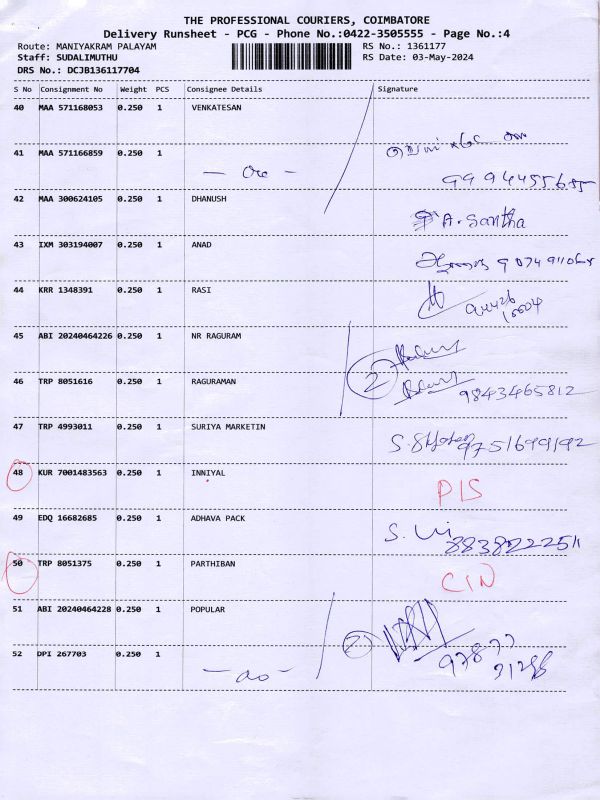 THE PROFESSIONAL COURIERS, COIMBATORE
Delivery Runsheet - PCG - Phone No.:0422-3505555 - Page No.:4
Route: MANIYAKRAM PALAYAM RS No.: 1361177
Staff: SUDALIMUTHU RS Date: 03-May-2024
DRS No.: DCJB136117704
S No Consignment No Weight PCS Consignee Details Signature
40 MAA 571168053 0.250 1 VENKATESAN
41 MAA 571166859 0.250 1
42 MAA 300624105 0.250 1 DHANUSH A. Santha
43 IXM 303194007 0.250 1 ANAD
44 KRR 1348391 0.250 1 RASI
45 ABI 20240464226 0.250 1 NR RAGURAM
46 TRP 8051616 0.250 1 RAGURAMAN 2 9843465812
47 TRP 4993011 0.250 1 SURIYA MARKETIN 9751699192
48 KUR 7001483563 0.250 1 INNIYAL DIS
49 EDQ 16682685 0.250 1 ADHAVA PACK 8838222511
50 TRP 8051375 0.250 1 PARTHIBAN CIN
51 ABI 20240464228 0.250 1 POPULAR 2
52 DPI 267703 0.250 1